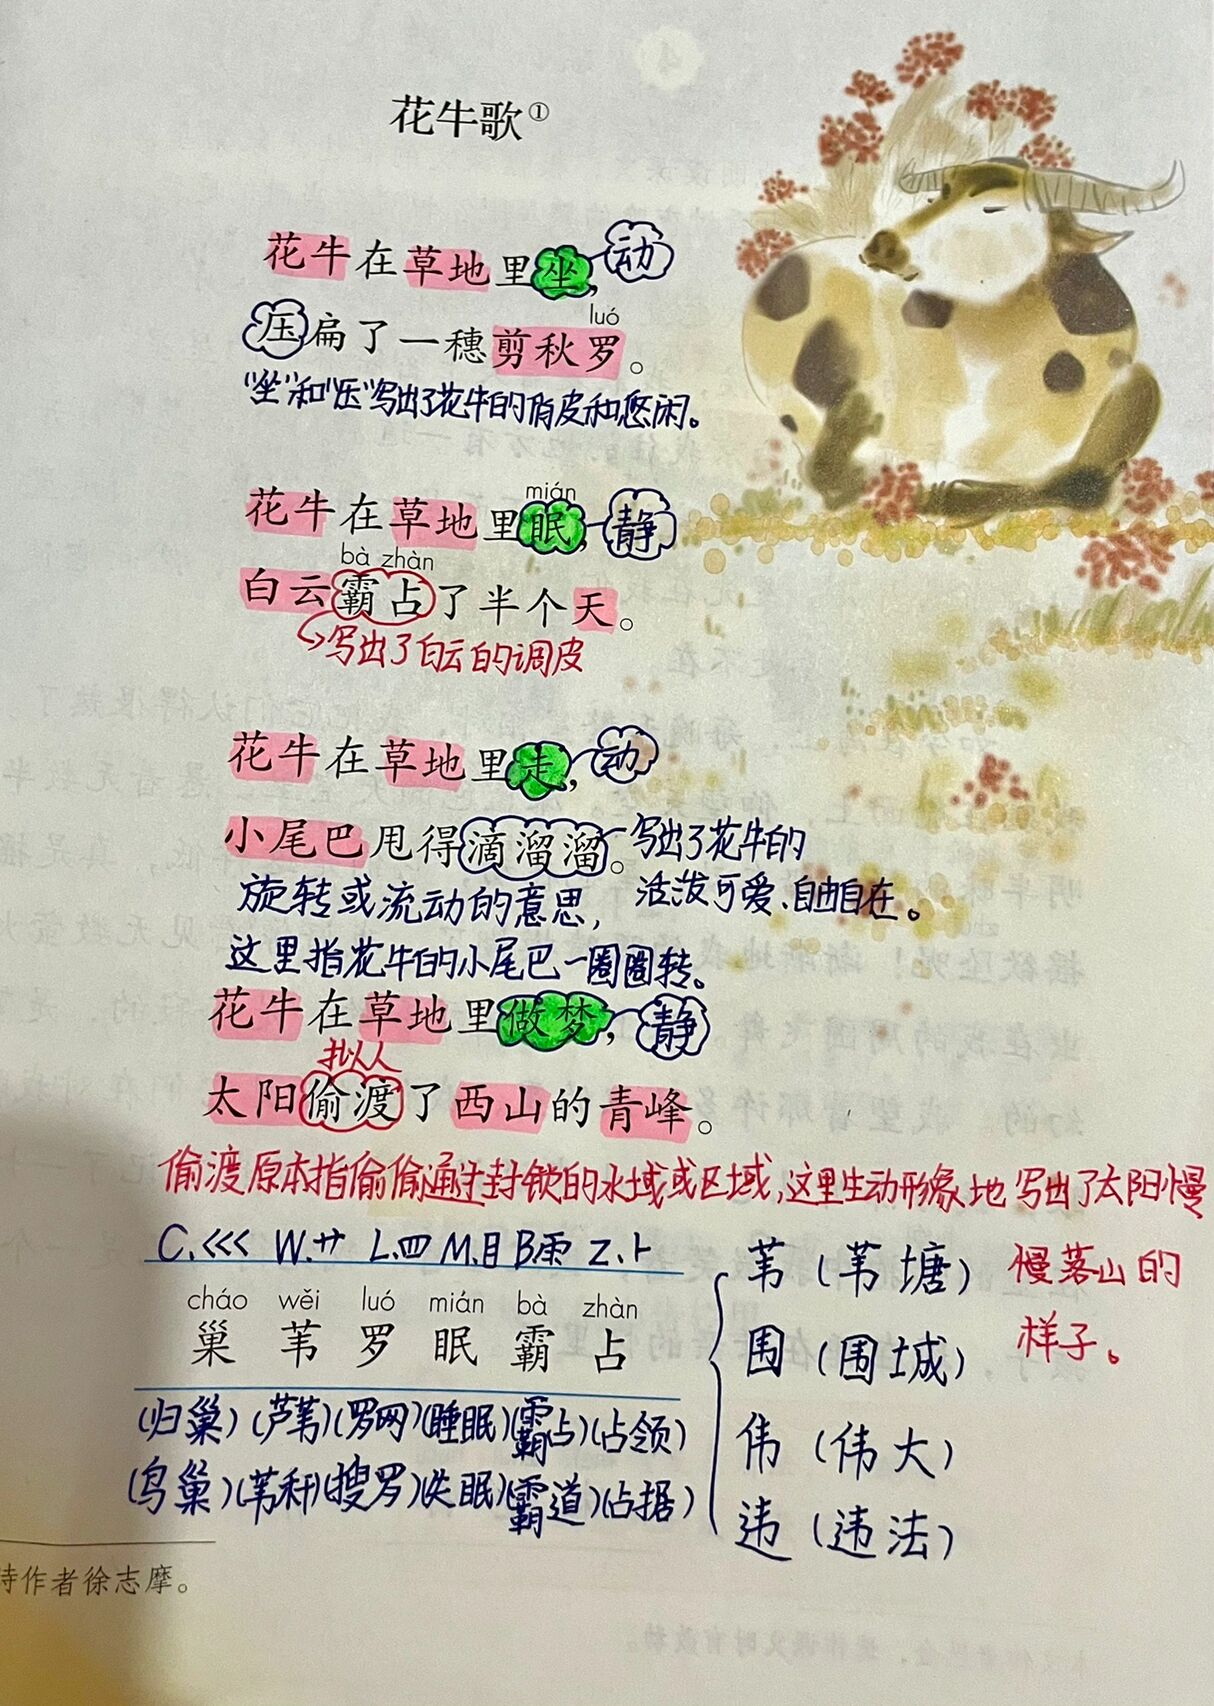 花牛歌①
花牛在草地里坐，动
压扁了一穗剪秋罗。
luó
“坐”和“压”写出了花牛的俏皮和悠闲。
mián
花牛在草地里眠，静
bà zhàn
白云霸占了半个天。
写出了白云的调皮
花牛在草地里走，动
小尾巴甩得滴溜溜。写出了花牛的
活泼可爱、自由自在。
旋转或流动的意思，
这里指花牛的小尾巴一圈圈转。
花牛在草地里做梦，静
拟人
太阳偷渡了西山的青峰。
偷渡原本指偷偷通过封锁的水域或区域，这里生动形象地写出了太阳慢
慢落山的
样子。
C.巛 W.艹 L.罒 M.目 B.雨 Z.⺊
cháo wěi luó mián bà zhàn
巢 苇 罗 眠 霸 占
(归巢)(芦苇)(罗网)(睡眠)(霸占)(占领)
(鸟巢)(苇秆)(搜罗)(失眠)(霸道)(占据)
苇(苇塘)
围(围城)
伟(伟大)
违(违法)
诗作者徐志摩。